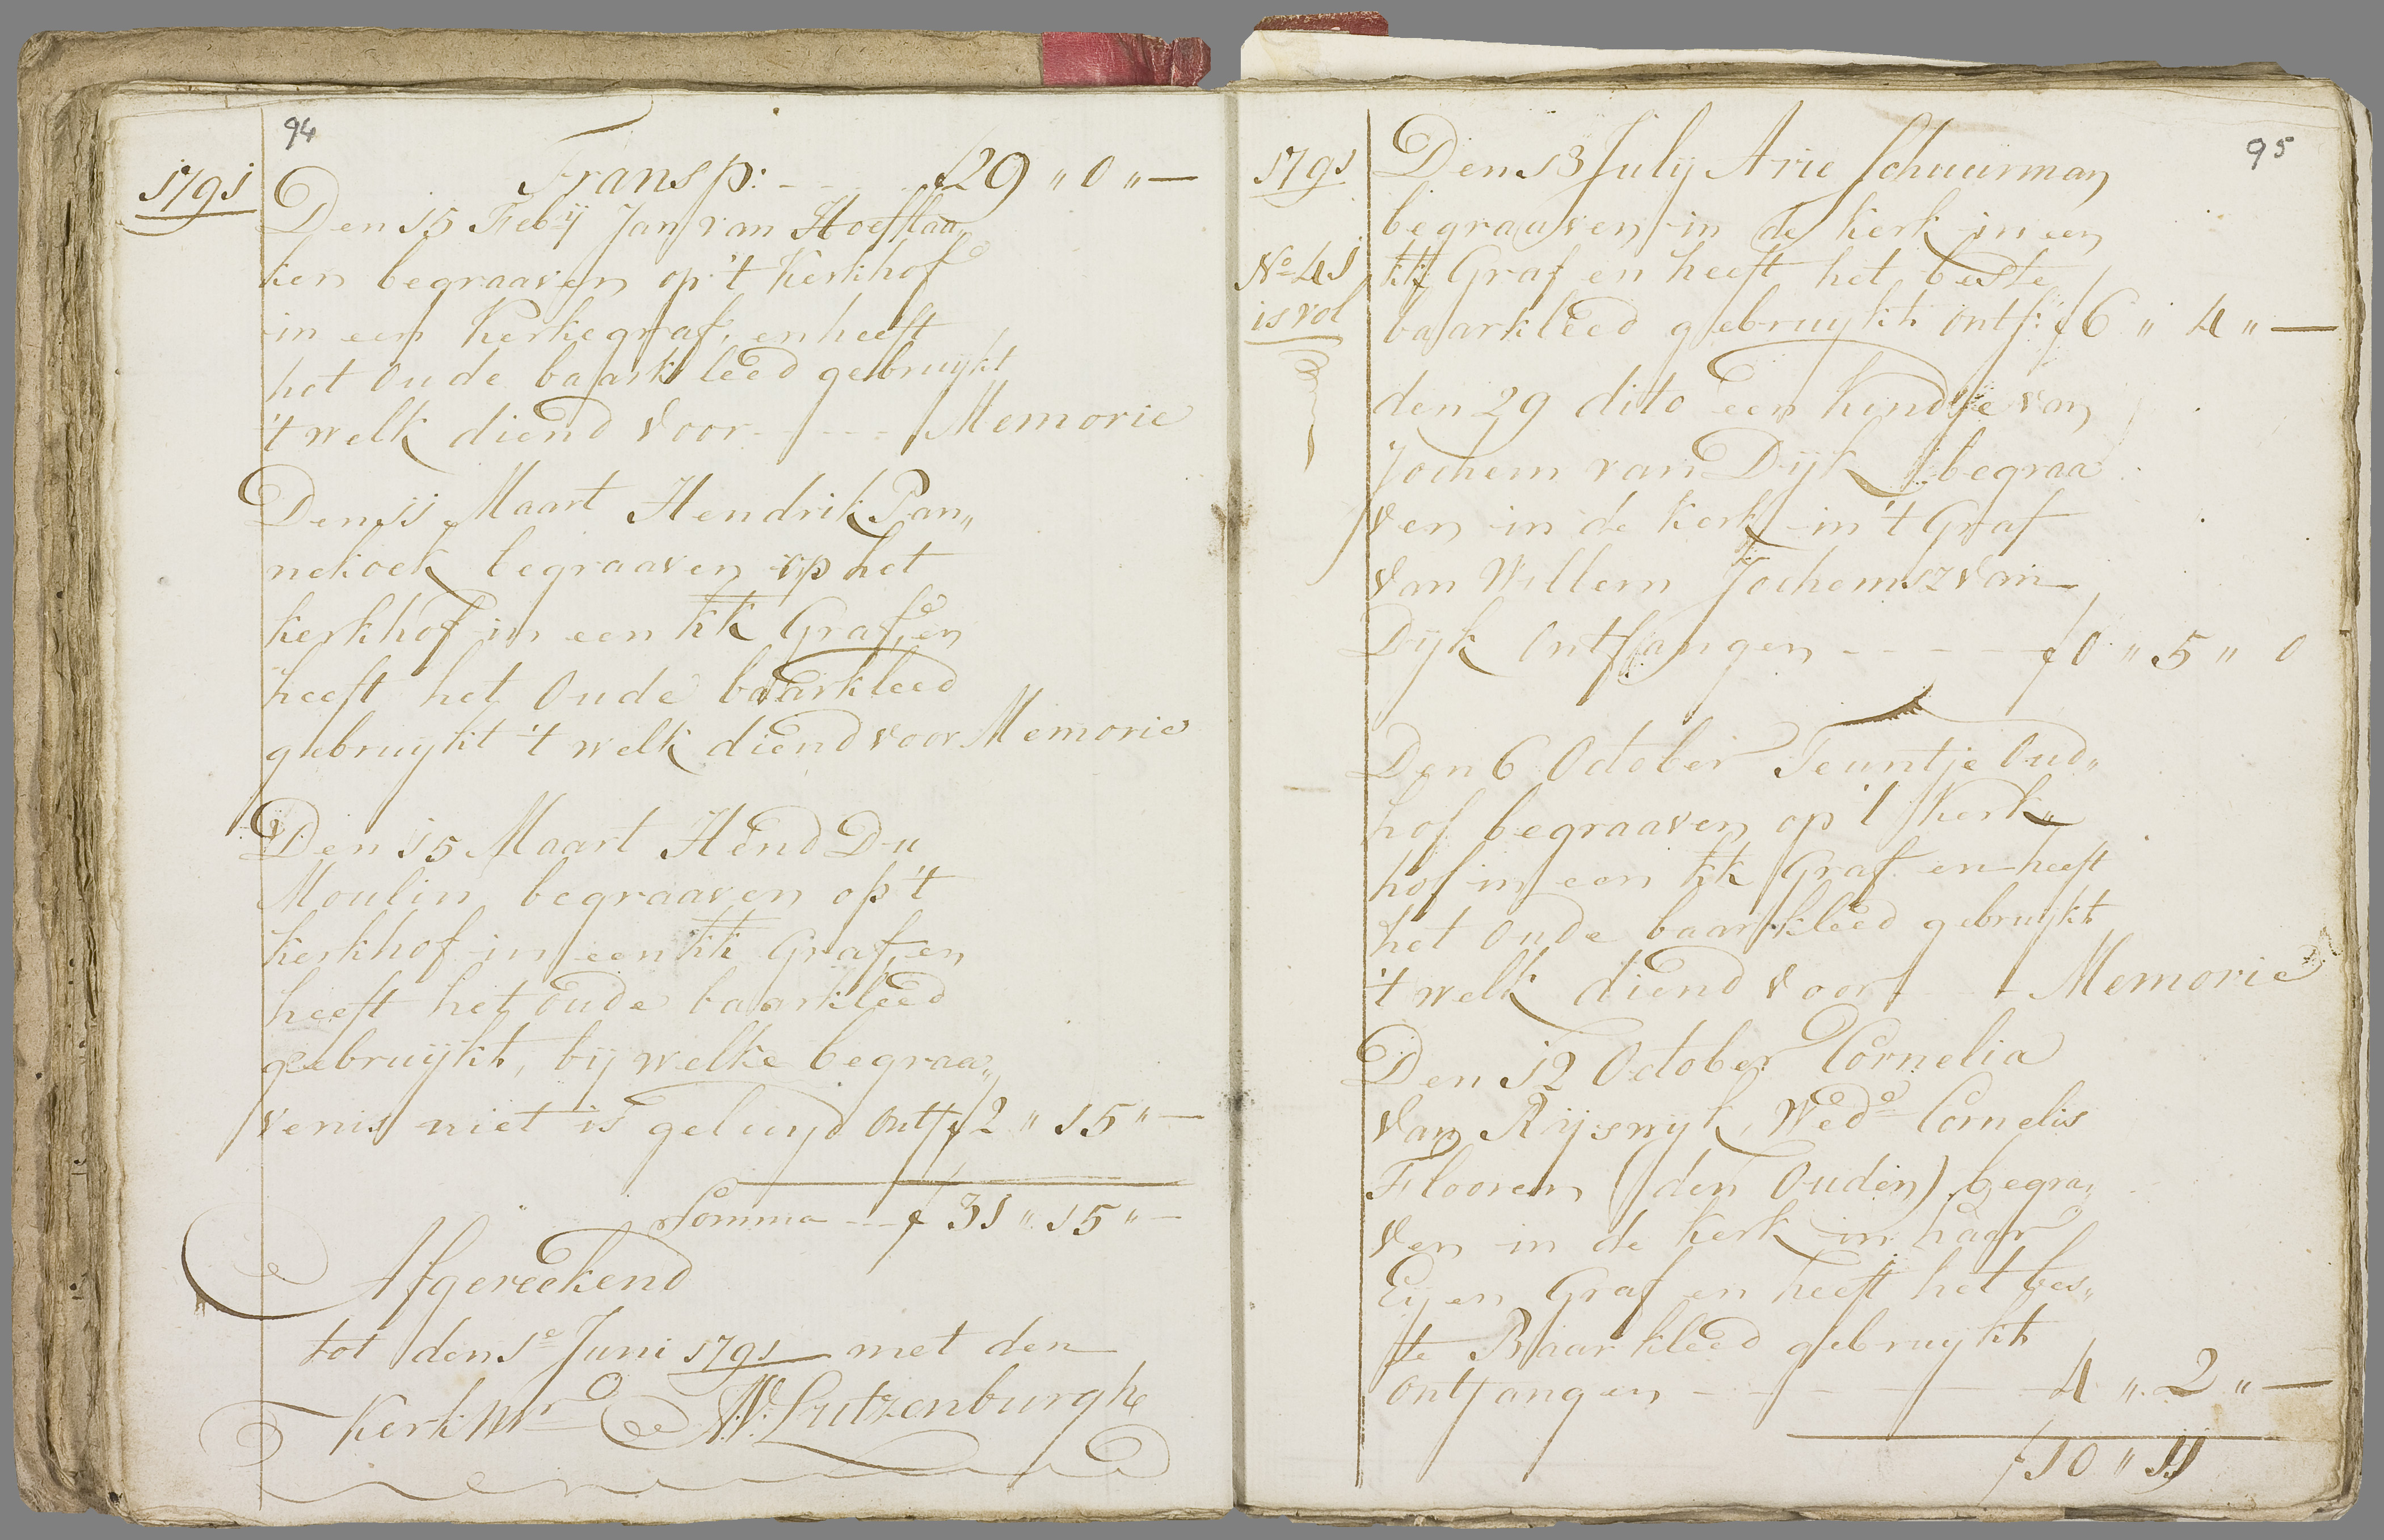 94
1791
Transp: - - - f 29 " 0 " —
Den 15 Feb:ij Jan van Hoeflaa„
ken begraaven op 't Kerkhof
in een Kerkegraf, en heeft
het Oude baarkleed gebruijkt
't welk diend voor - - - - Memorie
Den 11 Maart Hendrik Pan„
nekoek begraaven op het
kerkhof in een kk Graf, en
heeft het Oude baarkleed
gebruijkt 't welk diend voor Memorie
Den 15 Maart Hend Du
Moulin begraaven op 't
kerkhof in een kk Graf, en
heeft het oude baarkleed
gebruijkt, bij welke begraa„
venis niet is geluijd ontf f 2 " 15 " —
Somma - - - f 31 " 15 " —
Afgereekend
tot den 1e Juni 1791 met den
Kerkmr W. Lutzenburgh
95
1791
Den 13 Julij Arie Schuurman
begraaven in de kerk in een
No 41
kk Graf en heeft het beste
is vol
baarkleed gebruijkt ontf: f 6 " 4 " —
den 29 dito een kindje van
Jochem van Dijk begraa
ven in de kerk in 't Graf
van Willem Jochemsz van
Dijk Ontfangen - - - - - f 0 " 5 " 0
Den 6 October Teuntje Oud„
hof begraaven op 't Kerk„
hof in een kk Graf en heeft
het Oude baarkleed gebruijkt
't welk diend voor - - Memorie
Den 12 October Cornelia
van Rijswijk, Wede Cornelis
Flooren (den Ouden) begra„
ven in de kerk in haar
Eijen Graf en heeft het bes„
te Baarkleed gebruijkt
Ontfangen - - - - - 4 " 2 " —
f 10 " 11